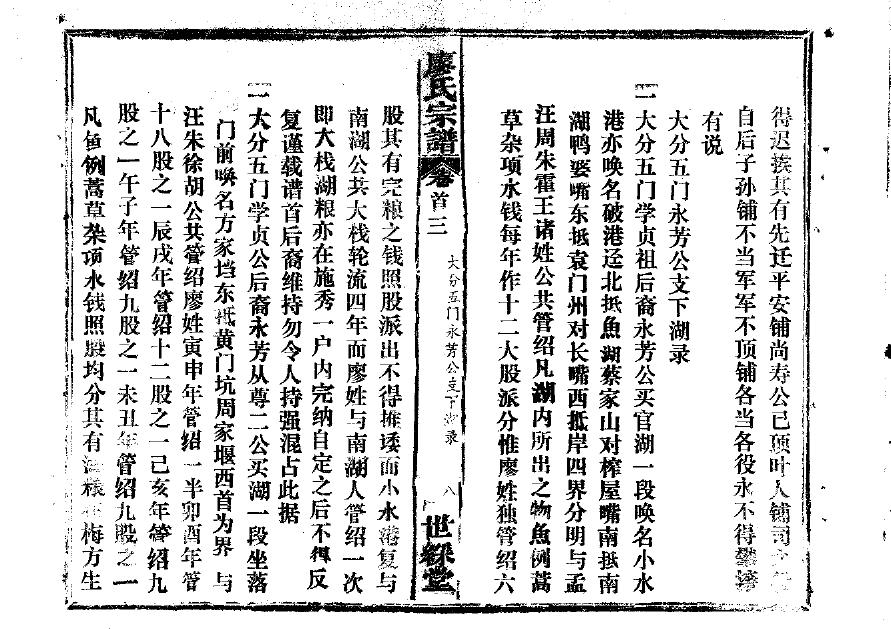 得迟挨其有先迁平安铺尚寿公已顶叶人铺司
自后子孙铺不当军军不顶铺各当各役永不得
有说
大分五门永芳公支下湖录
一大分五门学贞祖后裔永芳公买官湖一段唤名小水
港亦唤名破港迳北抵魚湖蔡家山对榨屋嘴南抵南
湖鸭婆嘴东抵袁门州对长嘴西抵岸四界分明与孟
汪周朱霍王诸姓公共管绍凡湖内所出之物魚例蒿
草杂项水钱每年作十二大股派分惟廖姓独管绍六
廖氏宗譜
卷首三
大分五门永芳公支下湖录
八
世綵堂
股其有完粮之钱照股派出不得推诿而小水港复与
南湖公共大栈轮流四年而廖姓与南湖人管绍一次
即大栈湖粮亦在施秀一户内完纳自定之后不得反
复谨载谱首后裔维持勿令人持强混占此据
一大分五门学贞公后裔永芳从尊二公买湖一段坐落
门前唤名方家垱东抵黄门坑周家堰西首为界 与
汪朱徐胡公共管绍廖姓寅申年管绍一半卯酉年管
十八股之一辰戌年管绍十二股之一己亥年管绍九
股之一午子年管绍九股之一未丑年管绍九股之一
凡鱼例蒿草杂项水钱照股均分其有 梅方生